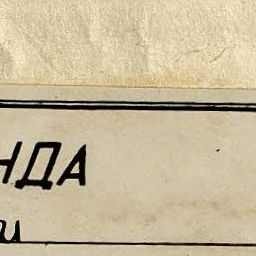 НДА
и